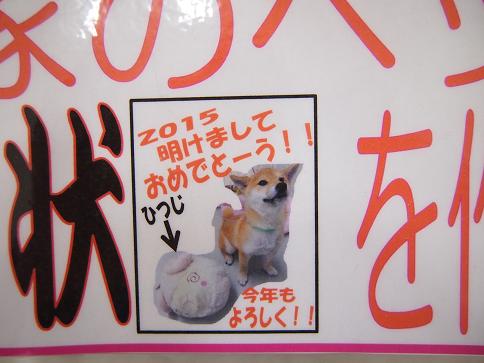 のペ
状
を
2015
明けまして
おめでとーう!!
ひつじ
今年も
よろしく!!